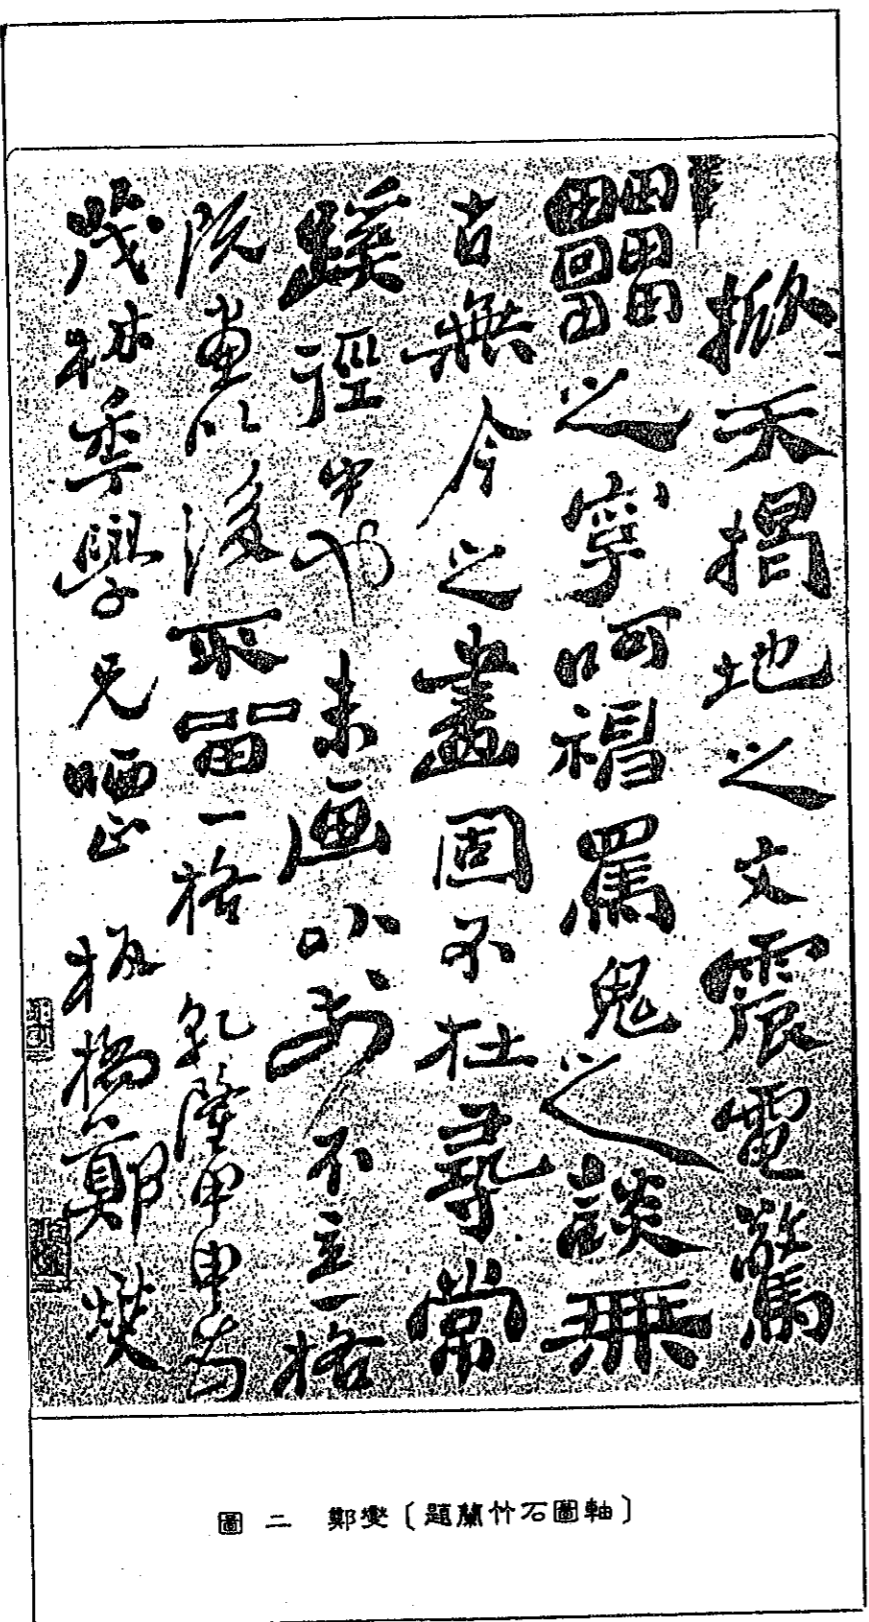 掀天揭地之文震電驚
靁之字呵神罵鬼之談無
古無今之畫固不在尋常
蹊徑中也未画以前不立一格
既畫以後不留一格 乾隆甲申為
茂林年學兄哂正 板橋鄭燮
圖 二 鄭燮〔題蘭竹石圖軸〕